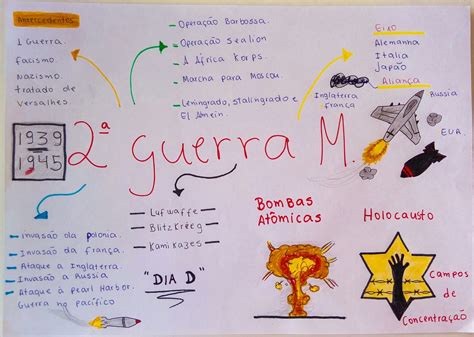 Antecedentes
1 Guerra.
Facismo.
Nazismo.
tratado de
Versalhes
Operação Barbossa.
Operação Sealion
A África Korps.
Marcha para Moscou.
Leningrado, Stalingrado e
El Amein.
Eixo
Alemanha
Italia
Japão
Aliança
Inglaterra
frança
Rússia
EUA.
1939
1945
2ª Guerra M.
Luf waffe
Blitzkrieg
Kamikazes
"DIA D"
Invasão da polonia.
Invasão da frança.
Ataque a Inglaterra.
Invasão a Russia
Ataque à pearl Harbor.
Guerra no pacífico
Bombas
Atômicas
Holocausto
Campos
de
Concentração